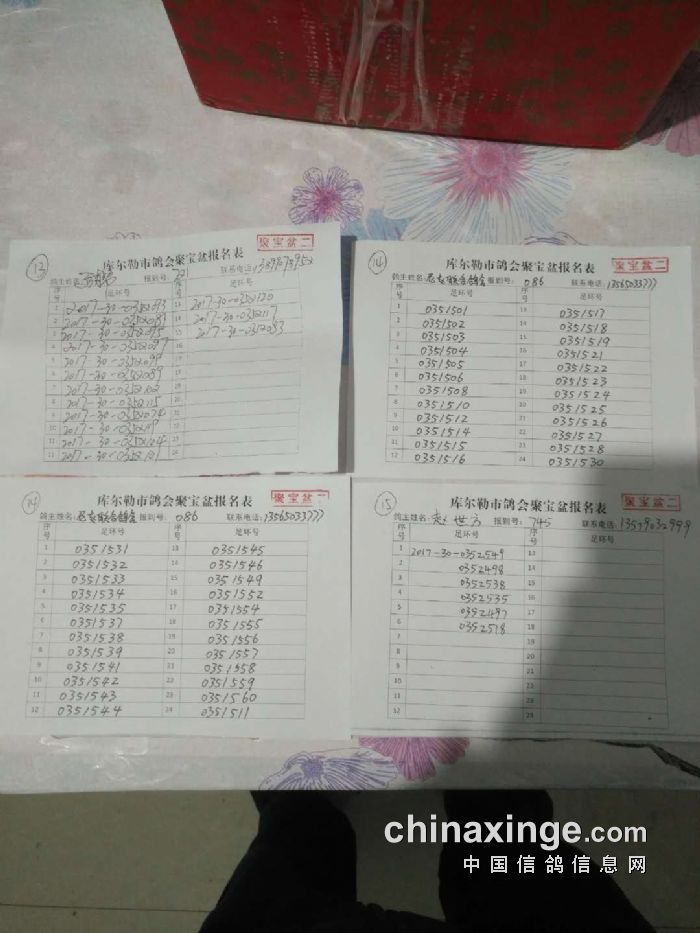 13
库尔勒市鸽会聚宝盆报名表
聚宝盆二
鸽主姓名: 报到号 联系电话:
序号 足环号 序号 足环号
1 2017-30-0352093 13 2017-30-0352120
2 2017-30-0352081 14 2017-30-0352117
3 2017-30-0352095 15 2017-30-0352083
4 2017-30-0352097 16
5 2017-30-0352099 17
6 2017-30-0352089 18
7 2017-30-0352102 19
8 2017-30-0352115 20
9 2017-30-0352074 21
10 2017-30-0352119 22
11 2017-30-0352104 23
12 2017-30-0352101 24
14
库尔勒市鸽会聚宝盆报名表
聚宝盆二
鸽主姓名: 联合鸽舍 报到号: 086 联系电话: 13565033777
序号 足环号 序号 足环号
1 0351501 13 0351517
2 0351502 14 0351518
3 0351503 15 0351519
4 0351504 16 0351521
5 0351505 17 0351522
6 0351506 18 0351523
7 0351508 19 0351524
8 0351510 20 0351525
9 0351512 21 0351526
10 0351514 22 0351527
11 0351515 23 0351528
12 0351516 24 0351530
14
库尔勒市鸽会聚宝盆报名表
聚宝盆二
鸽主姓名: 联合鸽舍 报到号: 086 联系电话: 13565033777
序号 足环号 序号 足环号
1 0351531 13 0351545
2 0351532 14 0351546
3 0351533 15 0351549
4 0351534 16 0351552
5 0351535 17 0351554
6 0351537 18 0351555
7 0351538 19 0351556
8 0351539 20 0351557
9 0351541 21 0351558
10 0351542 22 0351559
11 0351543 23 0351560
12 0351544 24 0351511
15
库尔勒市鸽会聚宝盆报名表
聚宝盆二
鸽主姓名: 赵世方 报到号: 745 联系电话: 13579032999
序号 足环号 序号 足环号
1 2017-30-0352549 13
2 0352498 14
3 0352538 15
4 0352535 16
5 0352497 17
6 0352578 18
7 19
8 20
9 21
10 22
11 23
12 24
chinaxinge.com
中国信鸽信息网